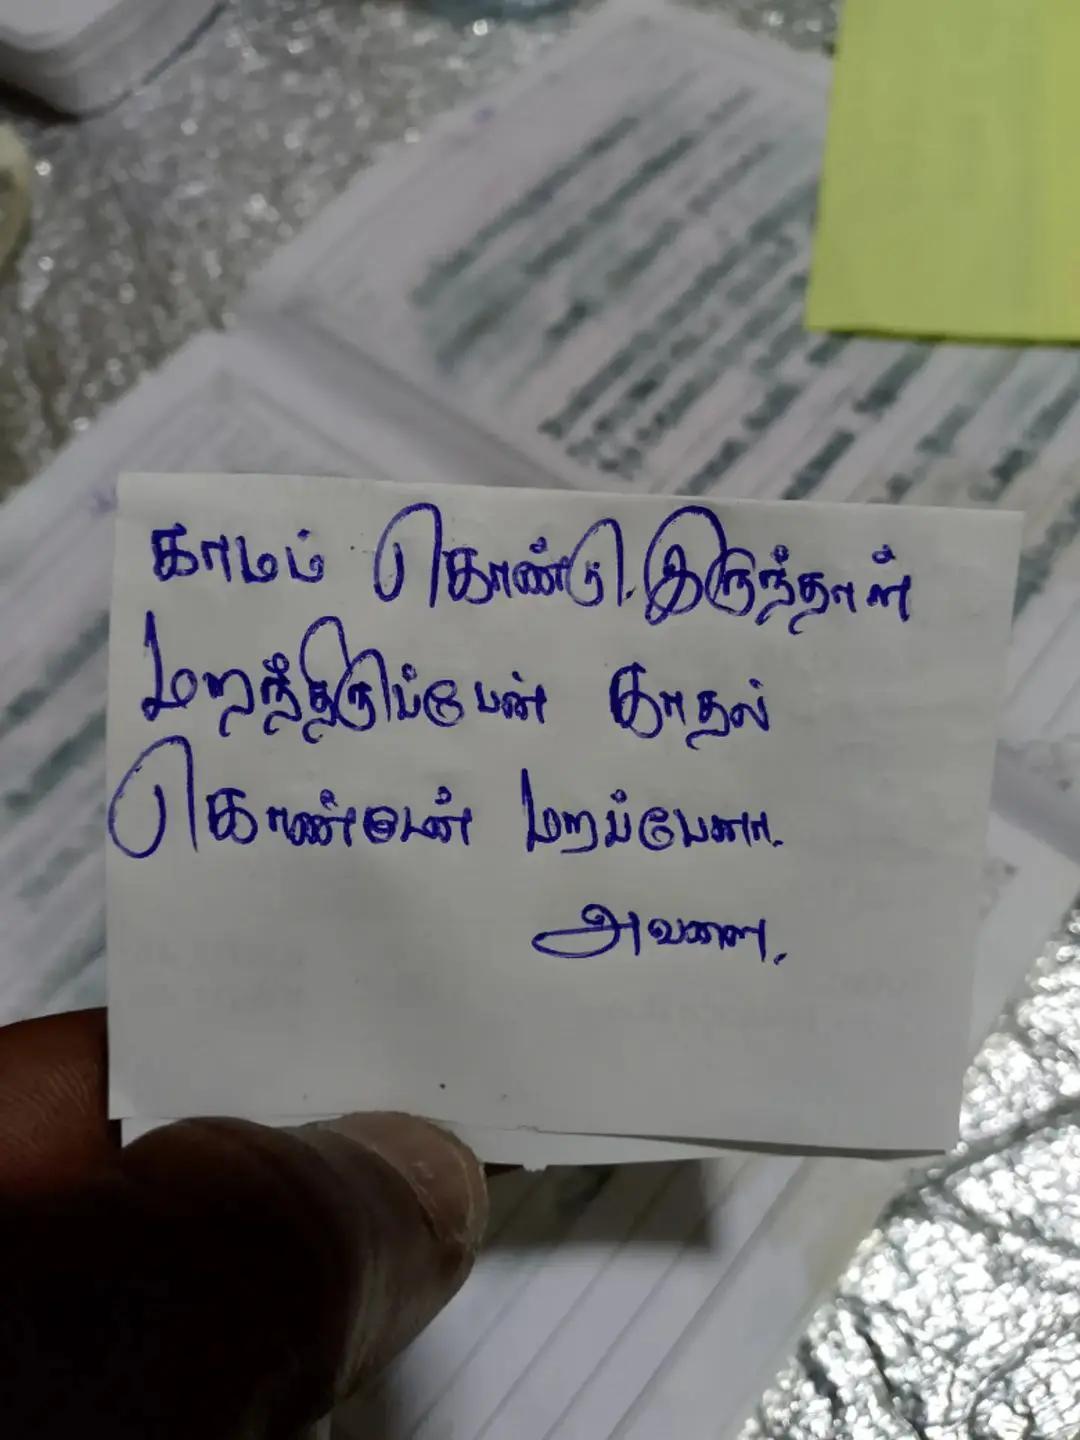 காமம் கொண்டு இருந்தாள்
மறந்திருப்பேன் காதல்
கொண்டேன் மறப்பேனா.
அவளை.